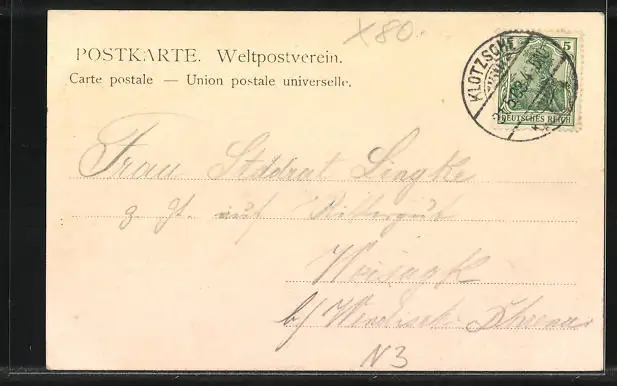 POSTKARTE. Weltpostverein.
Carte postale — Union postale universelle.
X80.
5
DEUTSCHES REICH
KLOTZSCHE
Frau Stadtrat Lingke
z. Zt. auf Rittergut
Weissagk
b/ Wendisch Drehna
N3